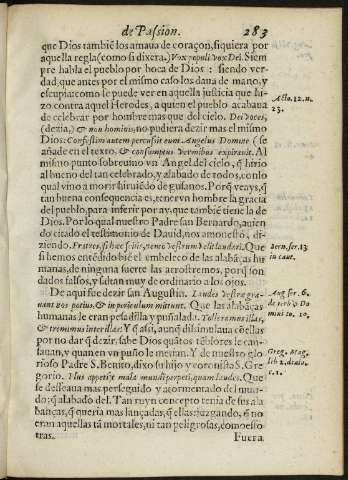 de Passion. 283
que Dios tambiē los amaua de coraçon, siquiera por
aquella regla (como si dixera.) Vox populi vox Dei. Siem
pre habla el pueblo por boca de Dios: siendo ver-
dad, que antes por el mismo caso los daua de mano, y
escupia: como se puede ver en aquella justicia que hi-
zo contra aquel Herodes, a quien el pueblo acabaua
de celebrar por hombre mas que del cielo. Dei voces,
(dezia,) & non hominis, no pudiera dezir mas el mismo
Dios: Confestim autem percussit eum Angelus Domine (se
añade en el texto. & consumptus vermibus expirauit. Al
mismo punto sobreuino vn Angel del cielo, q̄ hirio
al bueno del tan celebrado, y alabado de todos, con lo
qual vino a morir hiruiēdo de gusanos. Porq̄ veays, q̄
tan buena consequencia es, tener vn hombre la gracia
del pueblo, para inferir por ay, que tambiē la tiene de
Dios. Por lo qual nuestro Padre san Bernardo, auien
do citado el testimonio de Dauid, nos amonestò, di-
ziendo. Fratres, si hæc scitis, nemo vestrum velit laudari. Que
si hemos entēdido biē el embeleco de las alabāças hu
manas, de ninguna suerte las arrostremos, porq̄ son
dados falsos, y saltan muy de ordinario a los ojos.
De aqui fue dezir san Augustin. Laudes vestræ gra-
uant nos potius, & in periculum mittunt. Que las alabāças
humanas le eran pesadilla y puñalada. Tolleramus illas,
& tremimus inter illas: Y q̄ assi, aunq̄ dissimulaua cō ellas
por no dar q̄ dezir, sabe Dios quātos tēblores le cau-
sauan, y quan en vn puño le metian. Y de nuestro glo
rioso Padre S. Benito, dixo su hijo y coronista S. Gre
gorio. Plus appetijt mala mundi perpeti, quam laudes. Que
se desseaua mas perseguido y atormentado del mun-
do: q̄ alabado del. Tan ruyn concepto tenia de sus ala
banças, q̄ queria mas lançadas, q̄ ellas: juzgando, q̄ no
eran aquellas tā mortales, ni tan peligrosas, como esto
tras. Fuera.
Acto. 12. n.
23.
Bern. ser. 13.
in cant.
Aug ser. 6.
de verb. Do
mini to. 10.
Greg. Mag.
lib 2. dialo.
c. 1.